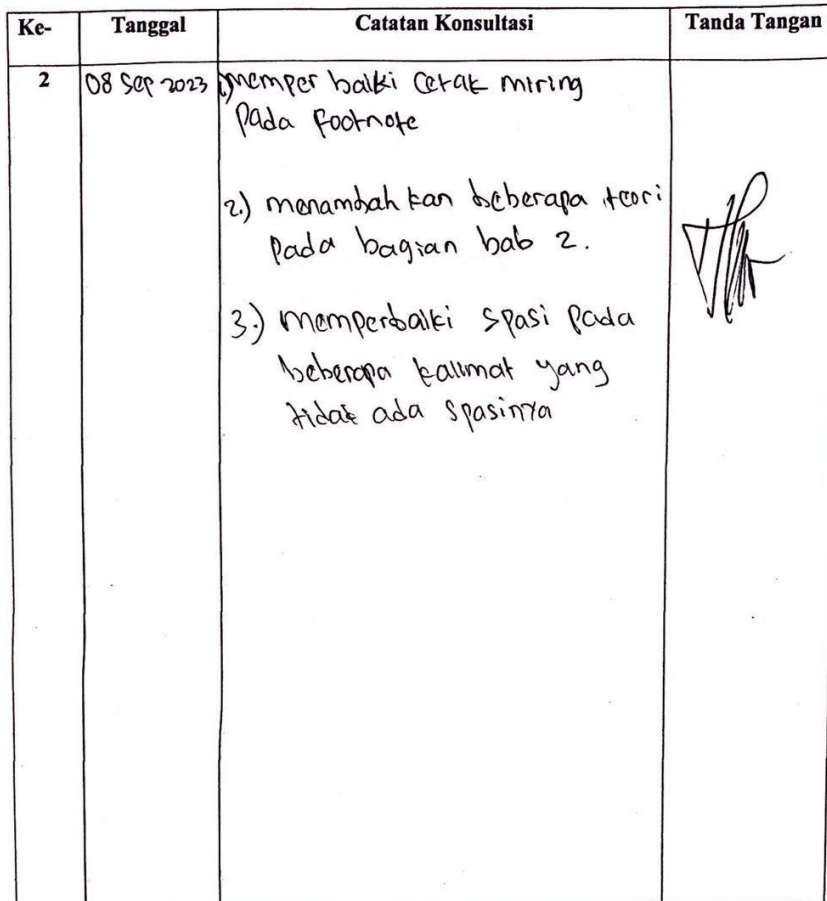 Ke- Tanggal Catatan Konsultasi Tanda Tangan
2 08 Sep 2023 1) memper baiki cetak miring
pada footnote
2.) menambah kan beberapa teori
pada bagian bab 2.
3.) memperbaiki spasi pada
beberapa kalimat yang
tidak ada spasinya